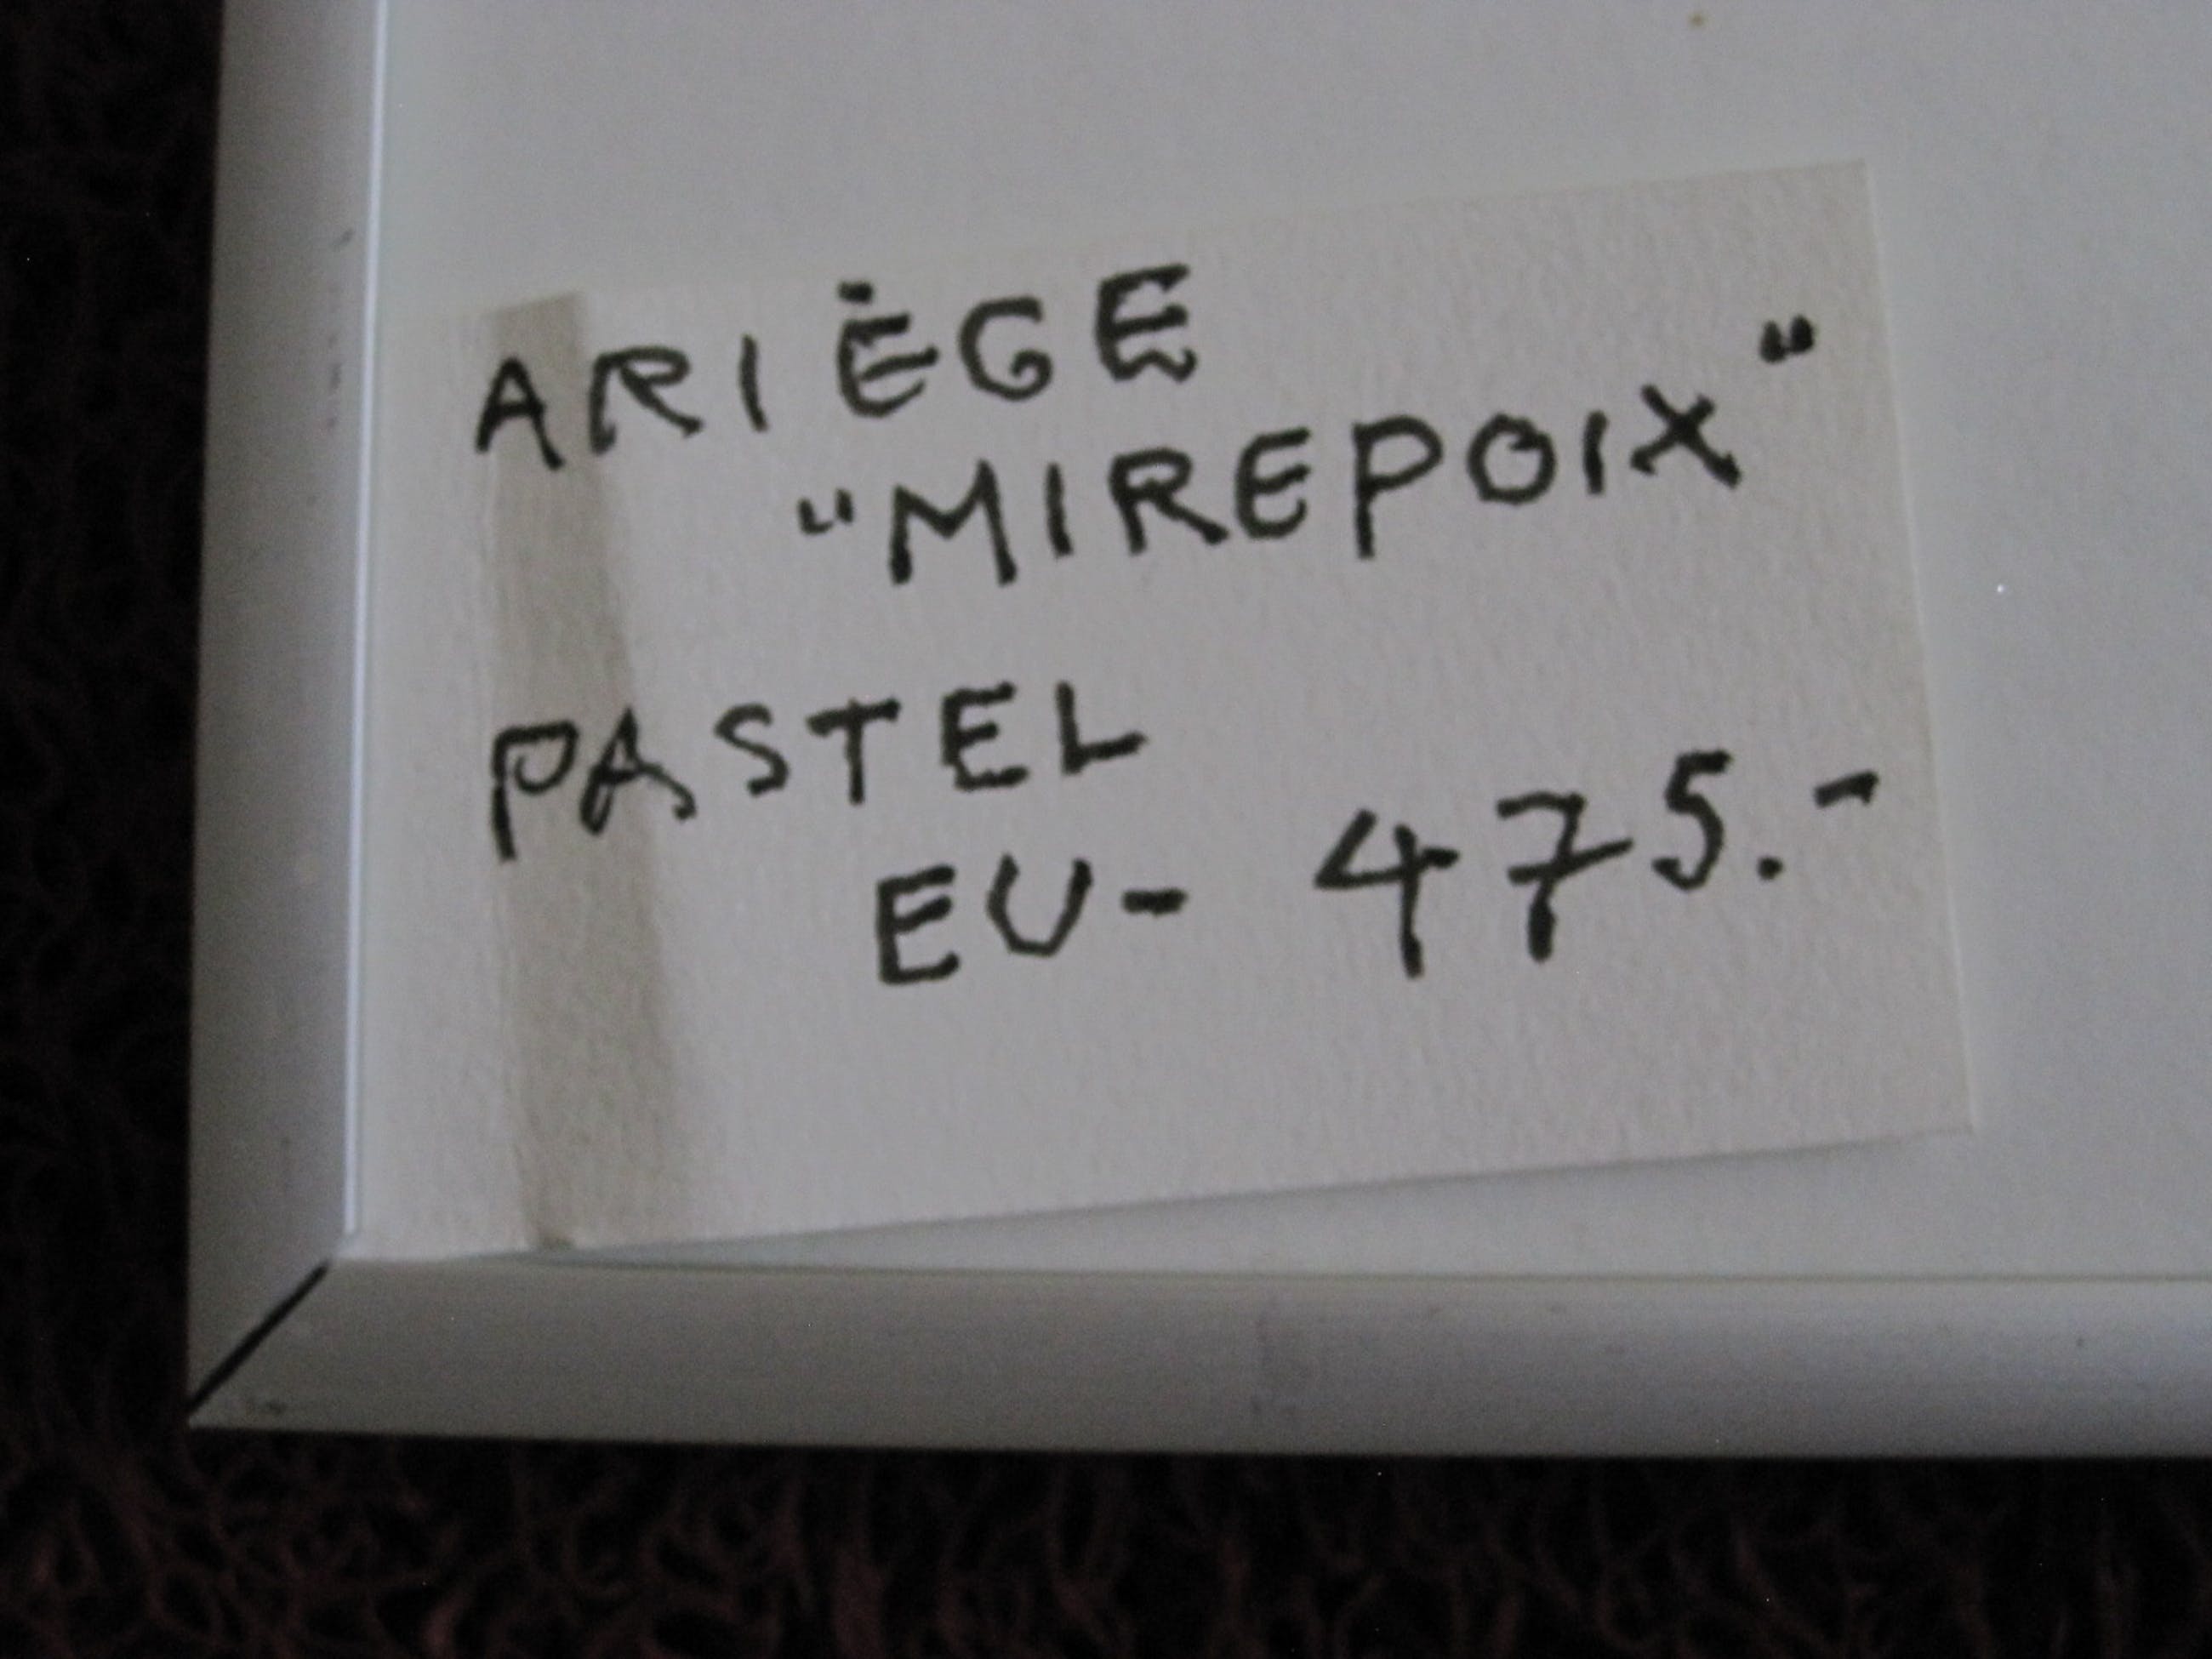 ARIÈGE
"MIREPOIX"
PASTEL
EU- 475.-